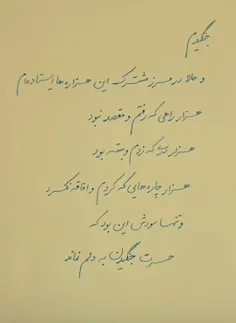 جنگیدم
و حالا در مرز مشترک این هزاره ها ایستاده ام
هزار راهی که رفتم و مقصد نبود
هزار دری که زدم و بسته بود
هزار چاره هایی که کردم و افاقه نکرد
و تنها سودش این بود که
حسرت جنگیدن به دلم نماند